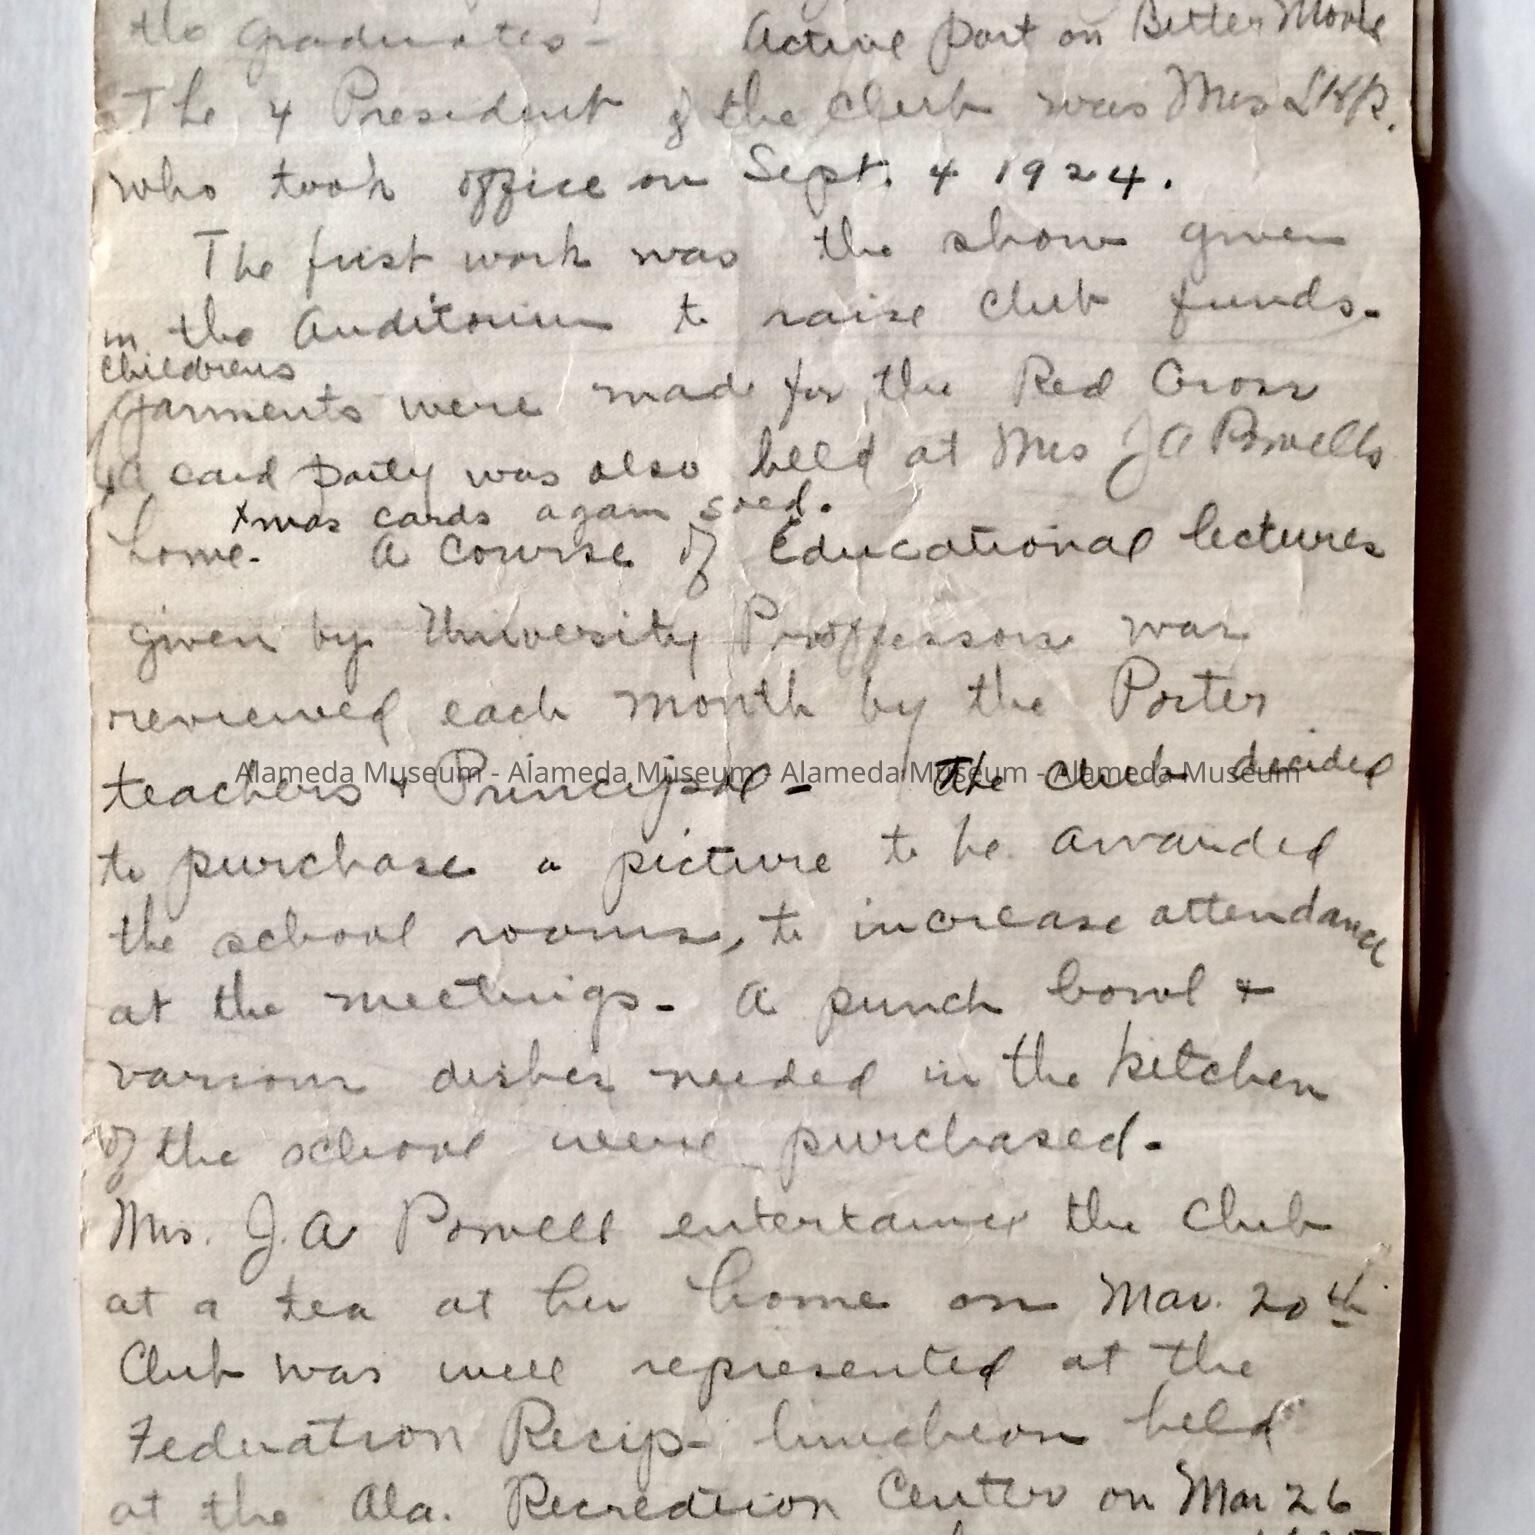 the graduates - Active part on Better Movie
The 4 President of the Club was Mrs
who took office on Sept. 4 1924.
The first work was the show given
in the Auditorium to raise Club funds.
Childrens
garments were made for the Red Cross
a card party was also held at Mrs J A Powells
Xmas cards again soed.
home. A course of Educational lectures
given by University Proffessors was
reviewed each month by the Porter
teachers + Principal - The Club decided
Alameda Museum - Alameda Museum - Alameda Museum - Alameda Museum
to purchase a picture to be awarded
the school rooms, to increase attendance
at the meetings. A punch bowl +
various dishes needed in the kitchen
of the school were purchased.
Mrs. J. A Powell entertained the Club
at a tea at her home on Mar. 20th
Club was well represented at the
Federation Recip- luncheon held
at the Ala. Recreation Center on Mar 26